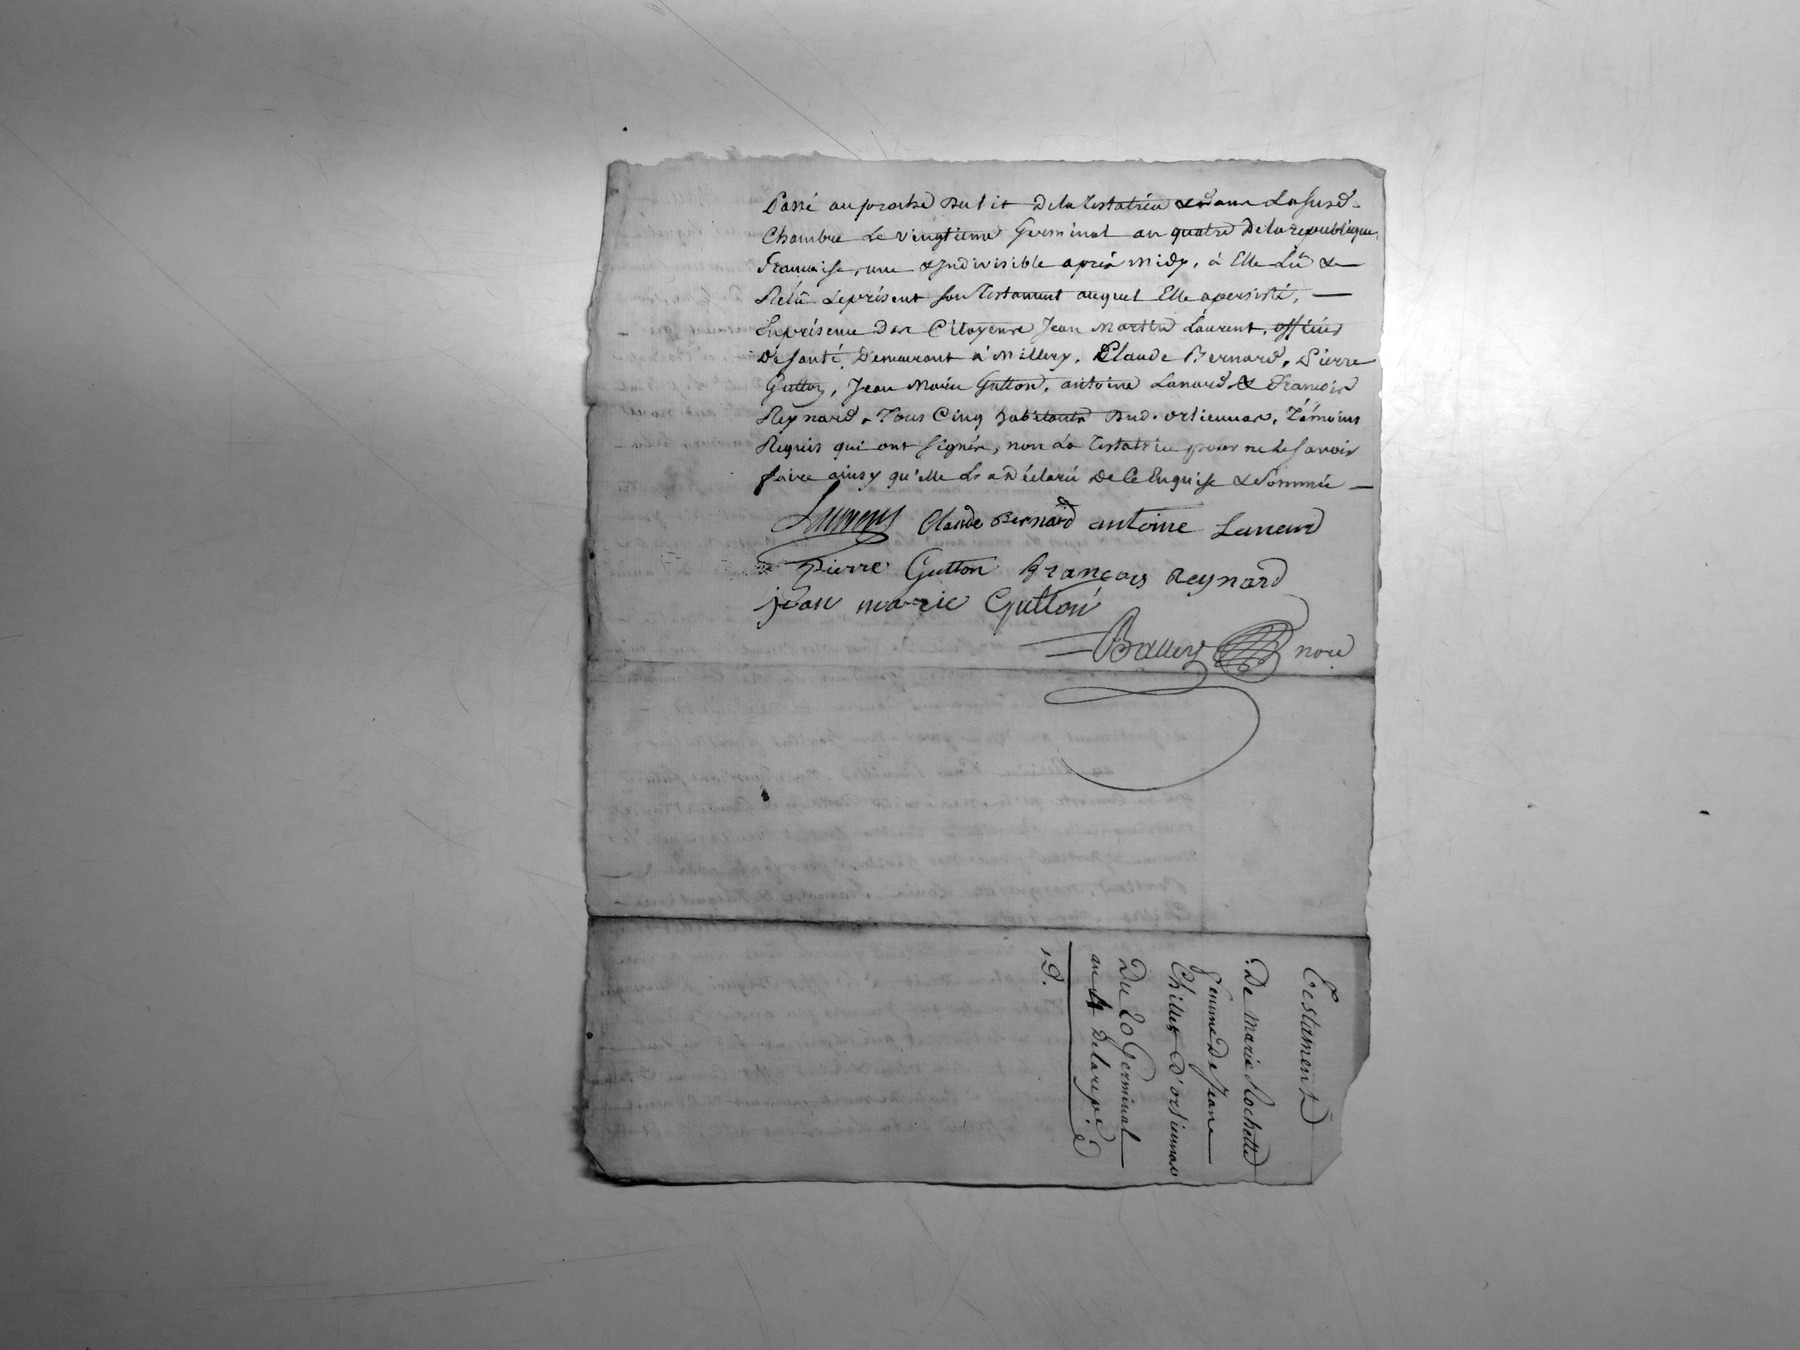 Passé au proche du lit de la testatrice & dans la susd.
Chambre le vingtieme Germinal an quatre de la republique
francaise, une & Indivisible après midy, à Elle Lû &
Relû le présent son testament auquel Elle a persisté, —
En présence des Citoyens Jean Martin Laurent, officier
de santé, demeurant à Millery, Claude Bernard, Pierre
Gutton, Jean Marie Gutton, antoine Lanard & francois
Reynard, tous Cinq habitants dud. orliennas, témoins
Requis qui ont signés, non la testatrice pour ne le savoir
faire ainsy qu'elle l'a déclaré de ce Enquise & sommée —
Laurent Claude Bernard antoine Laneard
Pierre Gutton françois Reynard
jean marie Gutton
nore
Testament
De Marie Rochette
femme de Jean
Chillet d'orlienas
Du 20 Germinal
an 4 de la rep.